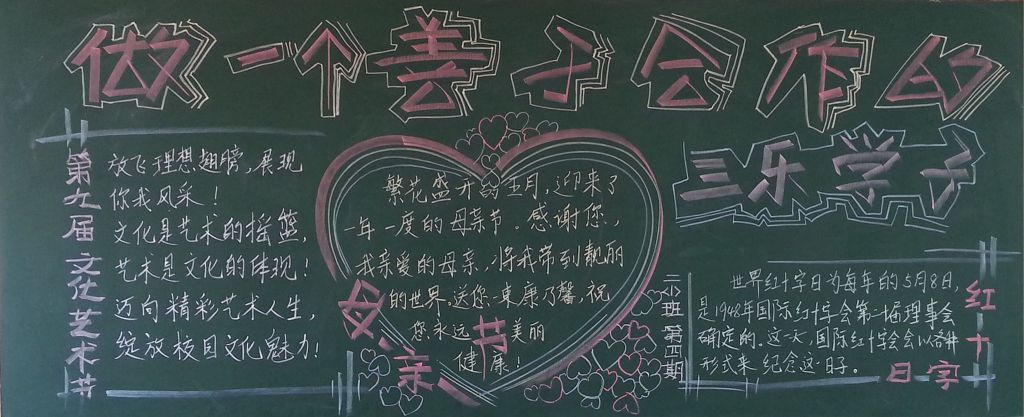 做一个善于合作的
三乐学子
第九届文化艺术节
放飞理想翅膀,展现
你我风采!
文化是艺术的摇篮,
艺术是文化的体现!
迈向精彩艺术人生,
绽放校园文化魅力!
繁花盛开的五月,迎来了
一年一度的母亲节。感谢您,
我亲爱的母亲,将我带到靓丽
的世界,送您一束康乃馨,祝
您永远美丽
健康!
母亲节
二小班第四期
世界红十字日为每年的5月8日,
是1948年国际红十字会第二十届理事会
确定的。这一天,国际红十字会会以各种
形式来纪念这一日子。
红十字日